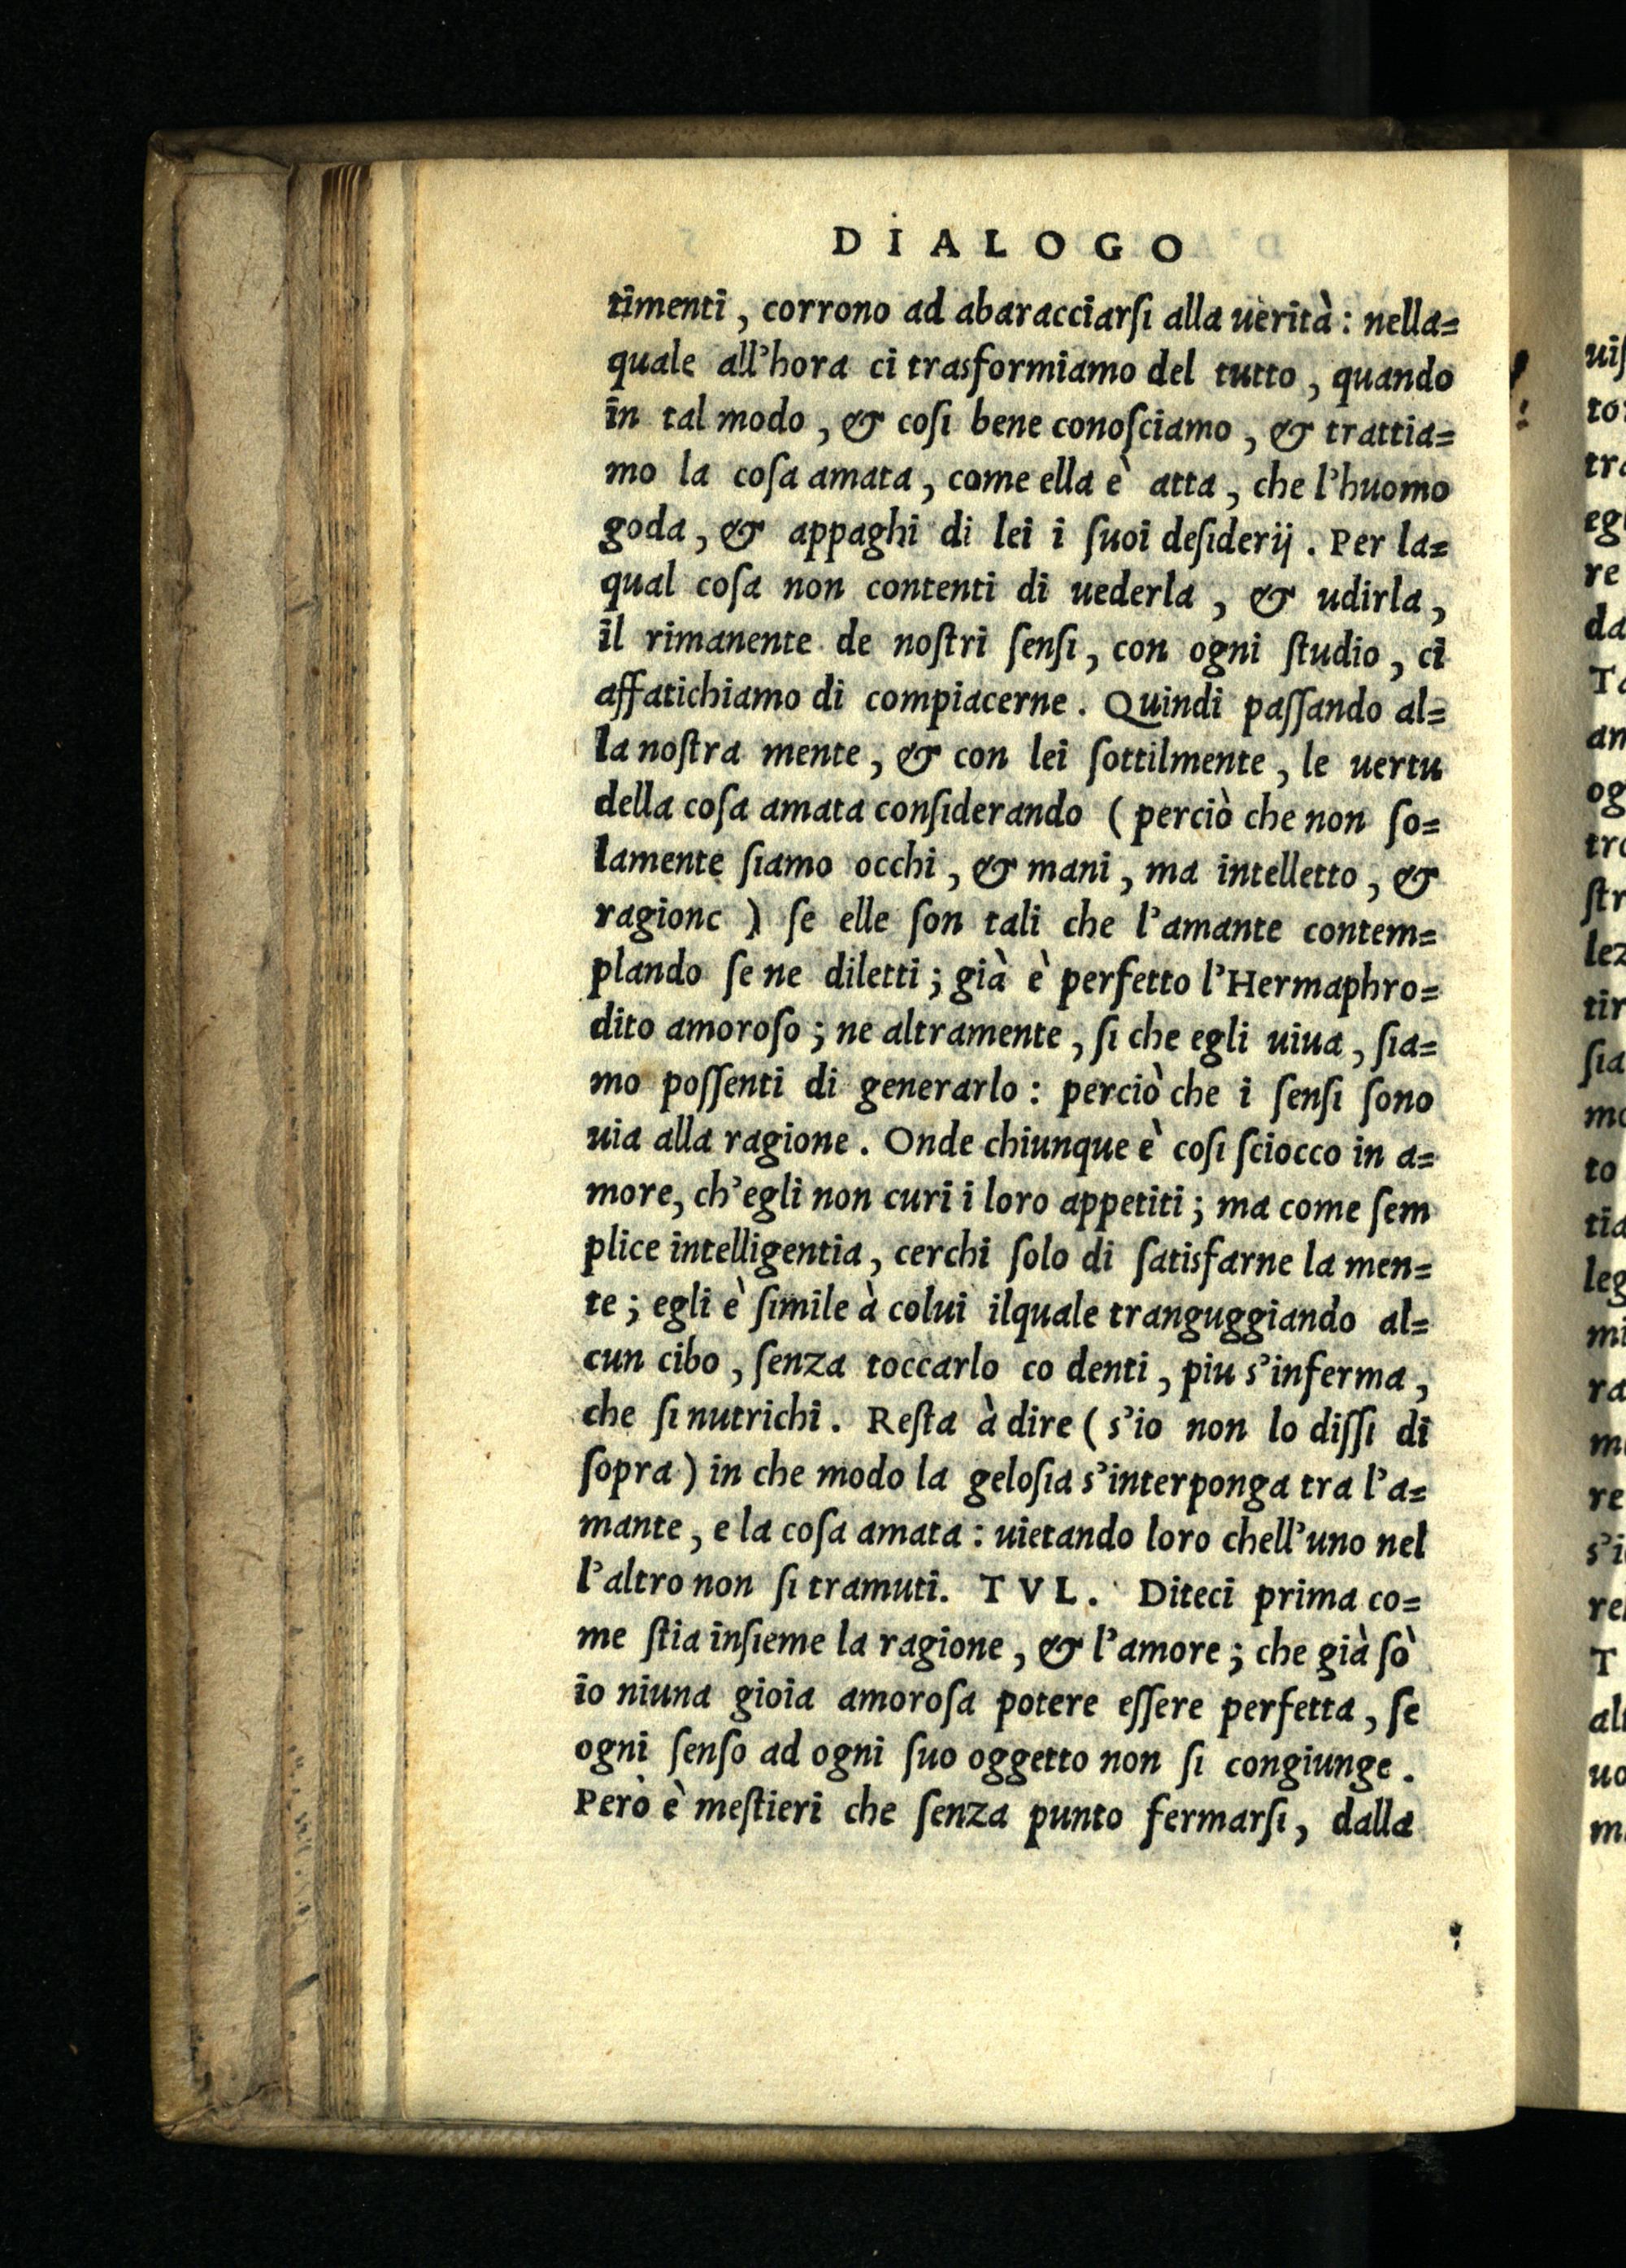 DIALOGO
timenti, corrono ad abaracciarſi alla uerità: nella=
quale all'hora ci trasformiamo del tutto, quando
in tal modo, & coſi bene conoſciamo, & trattia=
mo la coſa amata, come ella è atta, che l'huomo
goda, & appaghi di lei i ſuoi deſiderij. Per la=
qual coſa non contenti di uederla, & udirla,
il rimanente de noſtri ſenſi, con ogni ſtudio, ci
affatichiamo di compiacerne. Quindi paſſando al=
la noſtra mente, & con lei ſottilmente, le uertu
della coſa amata conſiderando (perciò che non ſo=
lamente ſiamo occhi, & mani, ma intelletto, &
ragione) ſe elle ſon tali che l'amante contem=
plando ſe ne diletti; già è perfetto l'Hermaphro=
dito amoroſo; ne altramente, ſi che egli uiua, ſia=
mo poſſenti di generarlo: perciò che i ſenſi ſono
uia alla ragione. Onde chiunque è coſi ſciocco in a=
more, ch'egli non curi i loro appetiti; ma come ſem
plice intelligentia, cerchi ſolo di ſatisfarne la men=
te; egli è ſimile à colui ilquale tranguggiando al=
cun cibo, ſenza toccarlo co denti, piu s'inferma,
che ſi nutrichi. Reſta à dire (s'io non lo diſſi di
ſopra) in che modo la geloſia s'interponga tra l'a=
mante, e la coſa amata: uietando loro chell'uno nel
l'altro non ſi tramuti. TVL. Diteci prima co=
me ſtia inſieme la ragione, & l'amore; che già ſò
io niuna gioia amoroſa potere eſſere perfetta, ſe
ogni ſenſo ad ogni ſuo oggetto non ſi congiunge.
Però è meſtieri che ſenza punto fermarſi, dalla